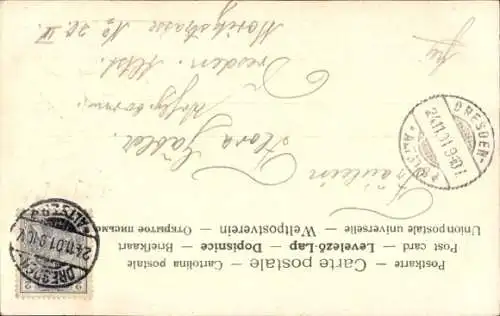 Postkarte — Carte postale — Cartolina postale
Post card — Levelező-Lap — Dopisnice — Briefkaart
Union postale universelle — Weltpostverein — Открытое письмо
Fräulein
Flora Gäbler.
Dresden. Altst.
Moritzstrasse No 20. II
frei
DRESDEN-
24.11.01.9-10V.
DRESDEN-
ALTST.
24.11.01.8-9V.
2
2